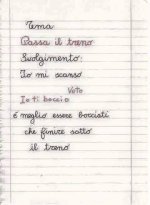 Tema
Passa il treno
Svolgimento:
Io mi scanso
Voto
Io ti boccio
é meglio essere bocciati
che finire sotto
il treno